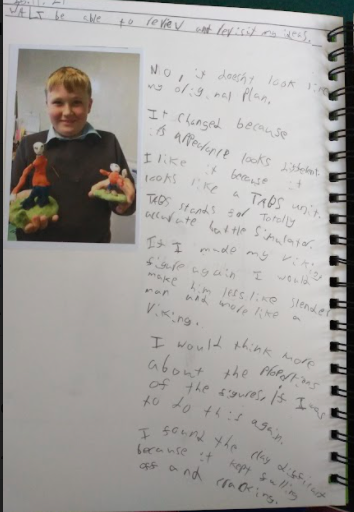 WALT be able to review and revisit my ideas.
No, it doesn't look like
my original plan.
It changed because
its appearance looks different.
I like it because it
looks like a TABS unit.
TABS stands for Totally
accurate battle Simulator.
If I made my Viking
figure again I would
make him less like slender
man and more like a
Viking.
I would think more
about the
of the figures, if I was
to do this again.
I found the clay difficult
because it kept falling
off and cracking.